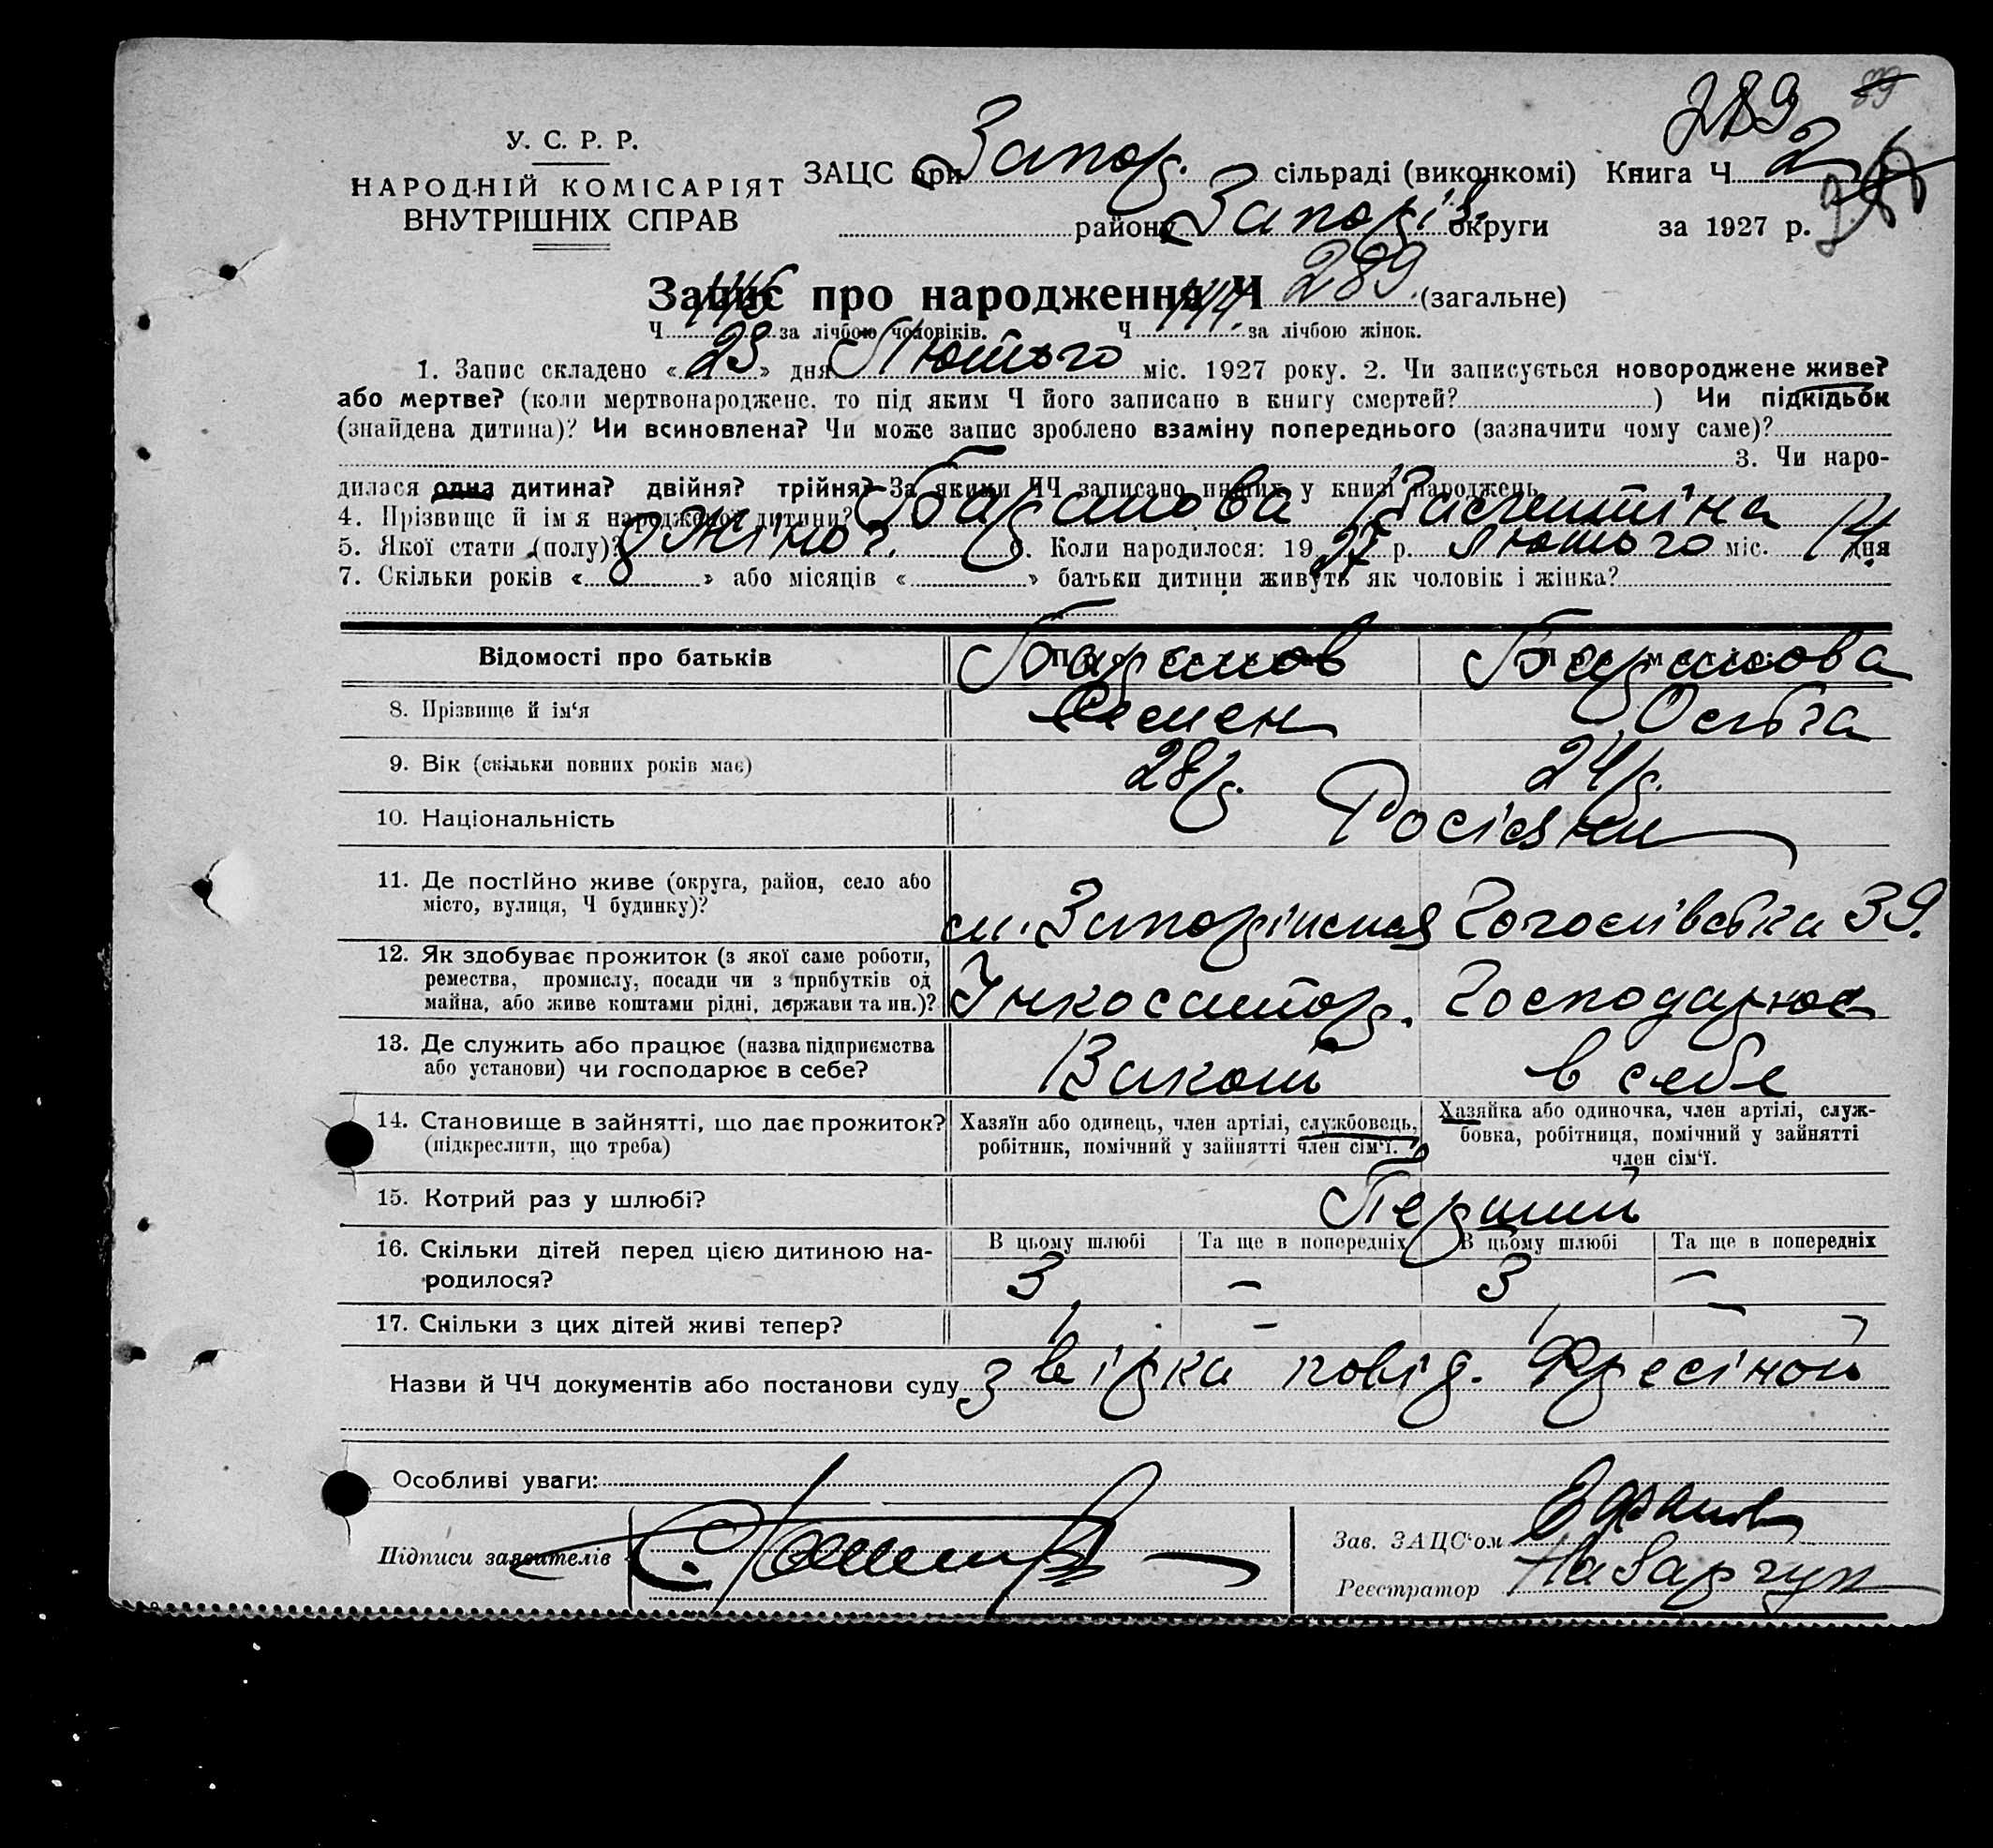 289 39
У. С. Р. Р.
НАРОДНІЙ КОМІСАРІЯТ
ВНУТРІШНІХ СПРАВ
ЗАЦС при Запор. сільраді (виконкомі) Книга Ч 2
району Запоріз. округи за 1927 р.
Запис про народження Ч 289 (загальне)
Ч 146 за лічбою чоловіків. Ч за лічбою жінок.
1. Запис складено « 23 » дня Лютого міс. 1927 року. 2. Чи записується новороджене живе?
або мертве? (коли мертвонароджене, то під яким Ч його записано в книгу смертей? ) Чи підкідьок
(знайдена дитина)? Чи всиновлена? Чи може запис зроблено взаміну попереднього (зазначити чому саме)?
3. Чи наро-
дилася одна дитина? двійня? трійня? За якими ЧЧ записано инших у книзі народжень
4. Прізвище й ім'я народженої дитини? Баранова Валентіна
5. Якої стати (полу)? Жіноч. 6. Коли народилося: 1927 р. лютого міс. 14 дня
7. Скільки років « » або місяців « » батьки дитини живуть як чоловік і жінка?
Відомості про батьків Баранов Баранова
8. Прізвище й ім'я Семен Ольга
9. Вік (скільки повних років має) 28 р. 24 р.
10. Національність Росіяни
11. Де постійно живе (округа, район, село або
місто, вулиця, Ч будинку)? м. Запоріжжя 39.
12. Як здобуває прожиток (з якої саме роботи,
ремества, промислу, посади чи з прибутків од
майна, або живе коштами рідні, держави та ин.)? Інкасатор. Господарює
13. Де служить або працює (назва підприємства
або установи) чи господарює в себе? в себе
14. Становище в зайнятті, що дає прожиток?
(підкреслити, що треба)
Хазяїн або одинець, член артілі, службовець,
робітник, помічний у зайнятті член сім'ї.
Хазяйка або одиночка, член артілі, служ-
бовка, робітниця, помічний у зайнятті
член сім'ї.
15. Котрий раз у шлюбі? Перший
16. Скільки дітей перед цією дитиною на-
родилося?
В цьому шлюбі Та ще в попередніх В цьому шлюбі Та ще в попередніх
3 – 3 –
17. Скільки з цих дітей живі тепер? 1 – 1 –
Назви й ЧЧ документів або постанови суду
Особливі уваги:
Підписи заявителів
Зав. ЗАЦС'ом
Реєстратор Назарчук